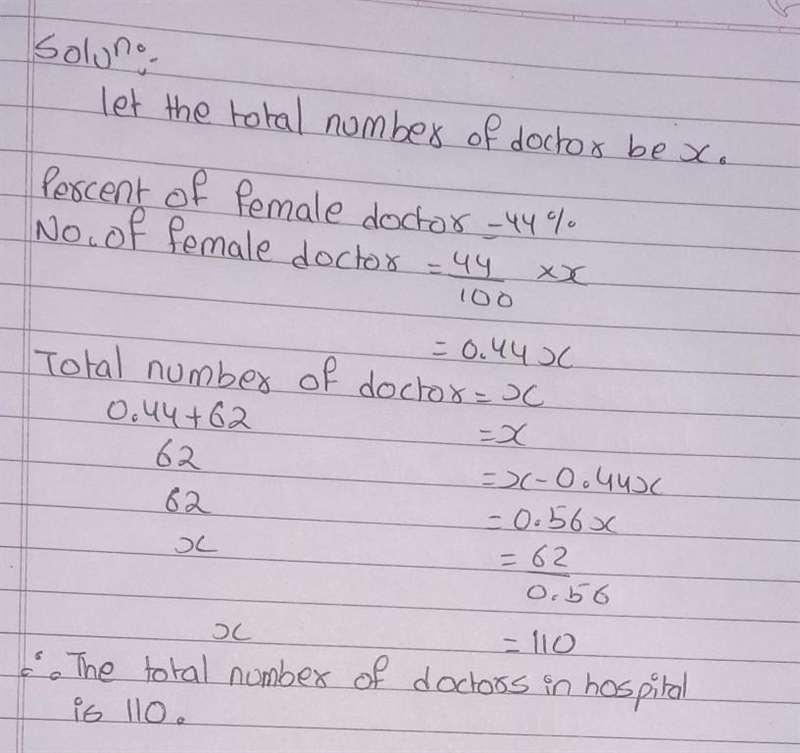 Solun:-
let the total number of doctor be x.
Percent of female doctor = 44%
No. of female doctor = 44/100 × x
= 0.44x
Total number of doctor = x
0.44 + 62 = x
62 = x - 0.44x
62 = 0.56x
x = 62/0.56
x = 110
∴ The total number of doctors in hospital
is 110.